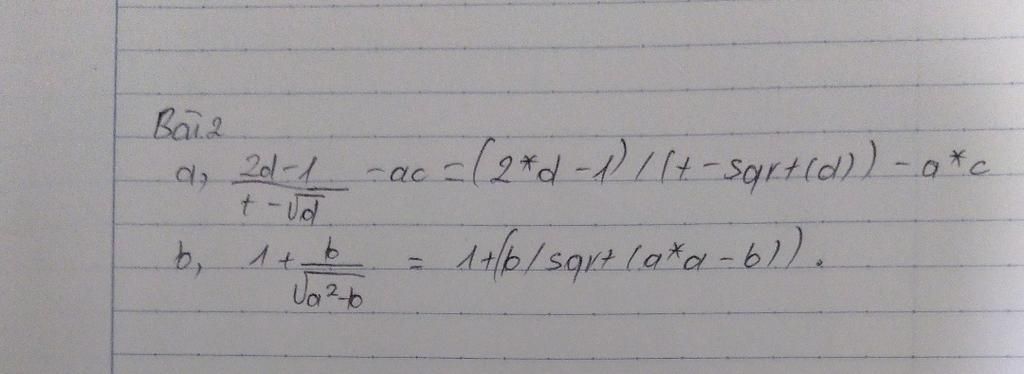 Bài 2
a, (2d-1)/(t-√d) -ac = (2*d-1)/(t-sqrt(d))-a*c
b, 1+b/√(a²-b) = 1+(b/sqrt(a*a-b)).